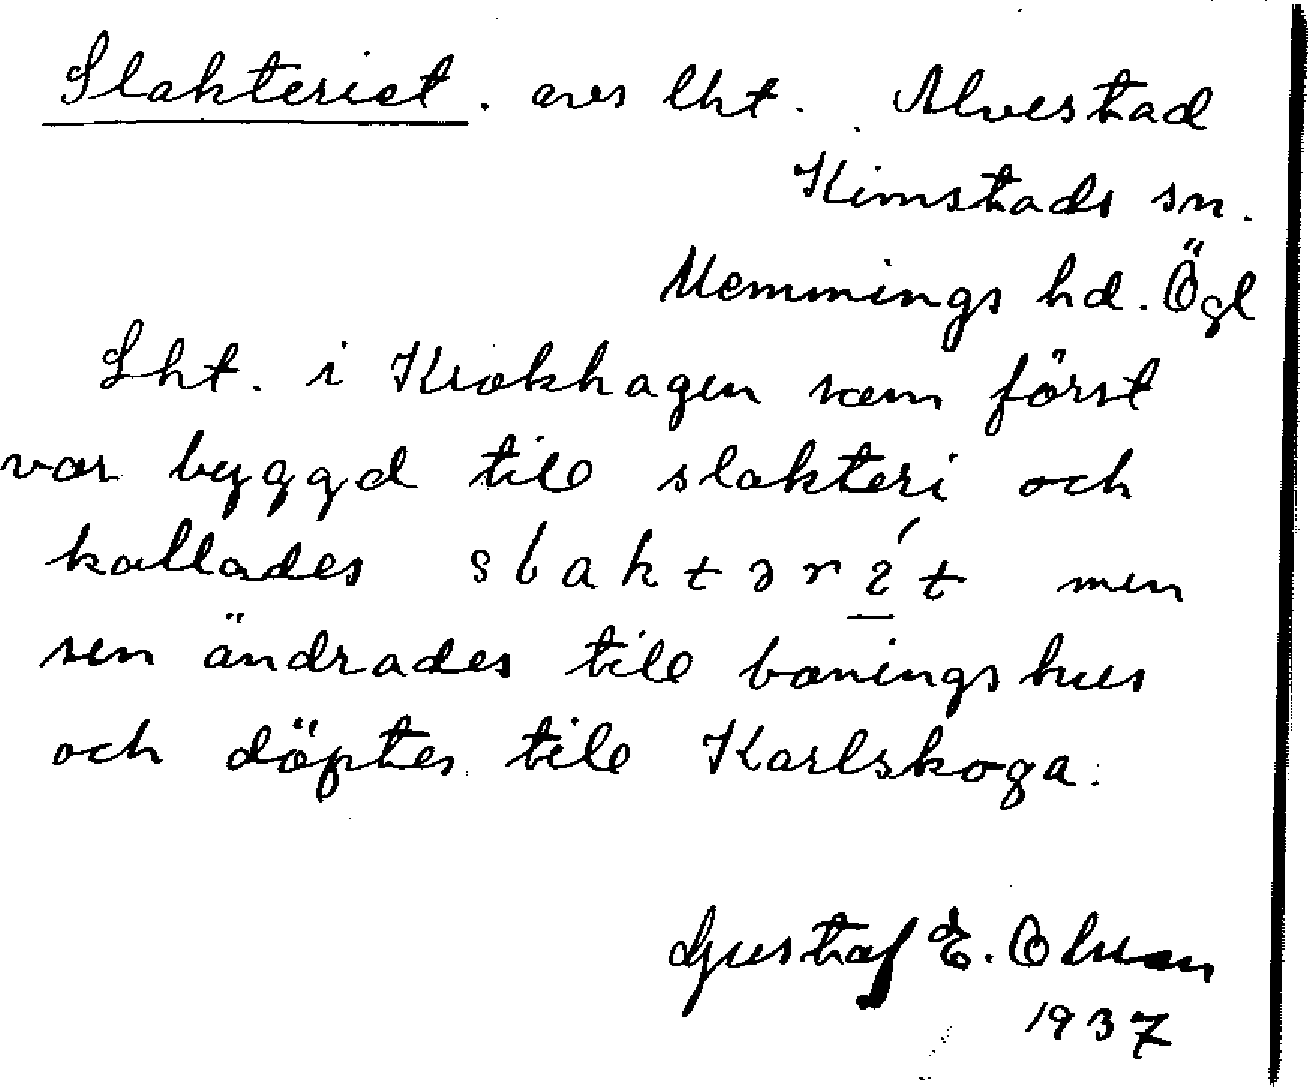 Slakteriet. avs lht. Alvestad
Kimstads sn.
Memmings hd. Ögl
Lht. i Krokhagen som först
var byggd till slakteri och
kallades slaktərít men
sen ändrades till boningshus
och döptes till Karlskoga.
Gustaf E. Olsson
1937